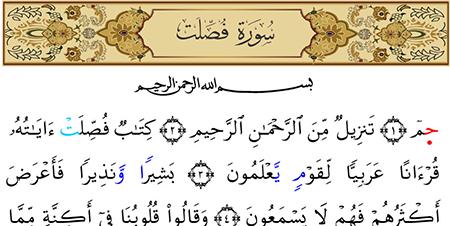 سُورَةُ فُصِّلَت
بسم الله الرحمن الرحيم
جمٓ ﴿١﴾ تَنزِيلٌ مِّنَ ٱلرَّحْمَٰنِ ٱلرَّحِيمِ ﴿٢﴾ كِتَٰبٌ فُصِّلَتْ ءَايَٰتُهُۥ
قُرْءَانًا عَرَبِيًّا لِّقَوْمٍ يَعْلَمُونَ ﴿٣﴾ بَشِيرًا وَنَذِيرًا فَأَعْرَضَ
أَكْثَرُهُمْ فَهُمْ لَا يَسْمَعُونَ ﴿٤﴾ وَقَالُوا۟ قُلُوبُنَا فِىٓ أَكِنَّةٍ مِّمَّا